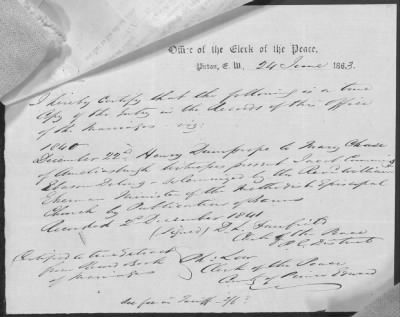 Office of the Clerk of the Peace,
Picton, C. W. 24 June 1863.
I hereby Certify that the following is a true
Copy of the Entry in the Records of this Office
of the Marriages viz:
1840
December 22nd Henry Dempsey to Mary Chase
of Ameliasburgh witnesses present Jacob
by the Revd William
Minister of the Methodist Episcopal
Church by Publication of Banns
Recorded 2d December 1841
(signed) D. L. Fairfield
Clerk of the Peace
P. E. District
Certified a true Extract
from Book
of Marriages
Ph: Low
Clerk of the Peace
County of Prince Edward